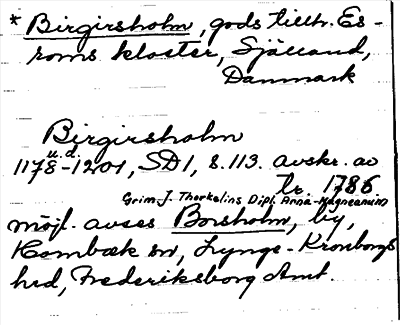 * Birgirsholm, gods tillh. Es-
roms kloster, Själland,
Danmark
Birgirsholm
u.d.
1178-1201, SD1, s. 113. avskr. av
tr. 1786
Grim J. Thorkelins Dipl. Arna-Magneanum
möjl. avses Borsholm, by,
Hornbæk sn, Lynge-Kronborgs
hrd, Frederiksborg Amt.